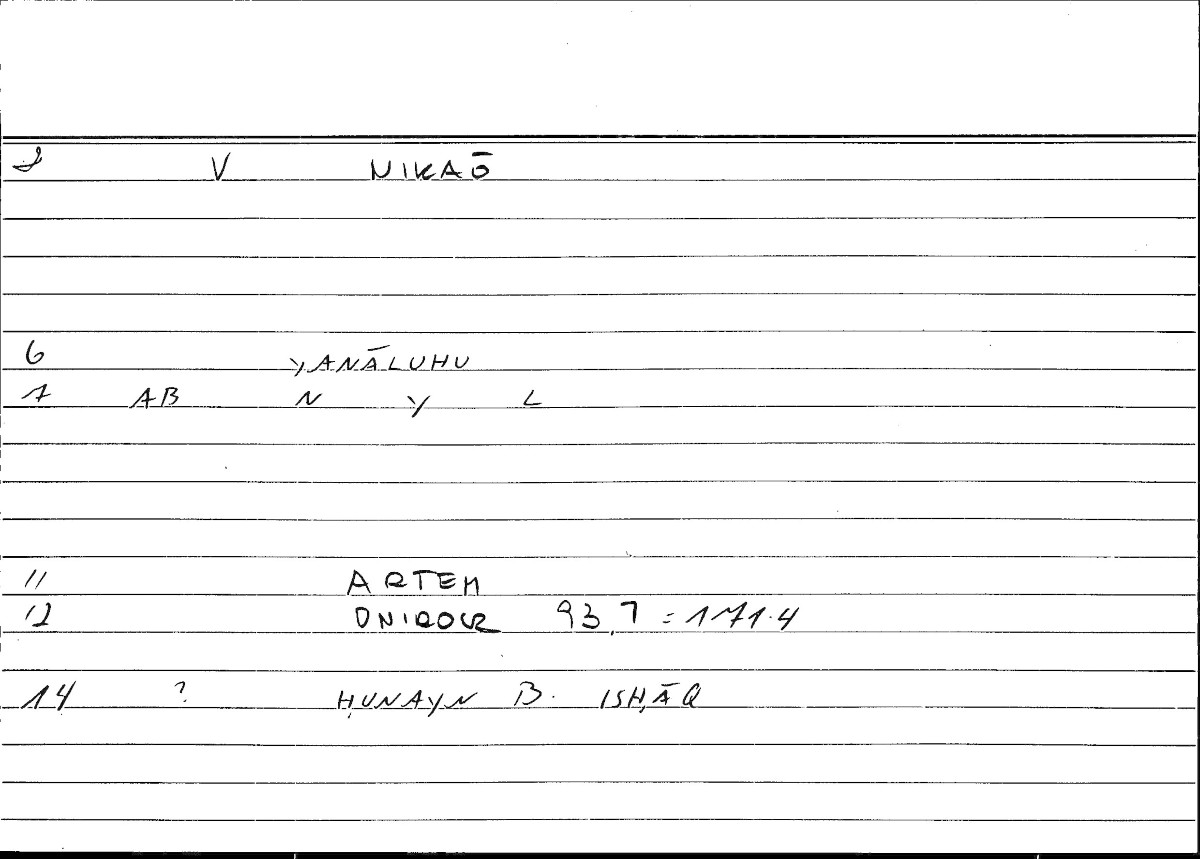 V NIKAŌ
6 YANĀLUHU
7 AB N Y L
11 ARTEM
12 ONIROCR 93,7 = 171.4
14 ? ḤUNAYN B. ISḤĀQ